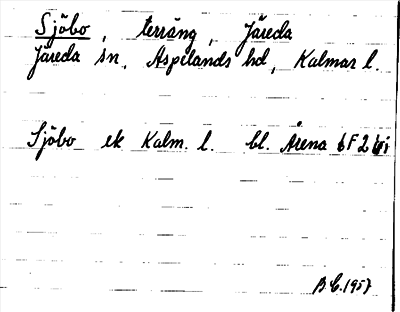 Sjöbo, terräng, Järeda
Järeda sn, Aspelands hd, Kalmar l.
Sjöbo ek Kalm. l. bl. Årena 6F2
B C. 1957